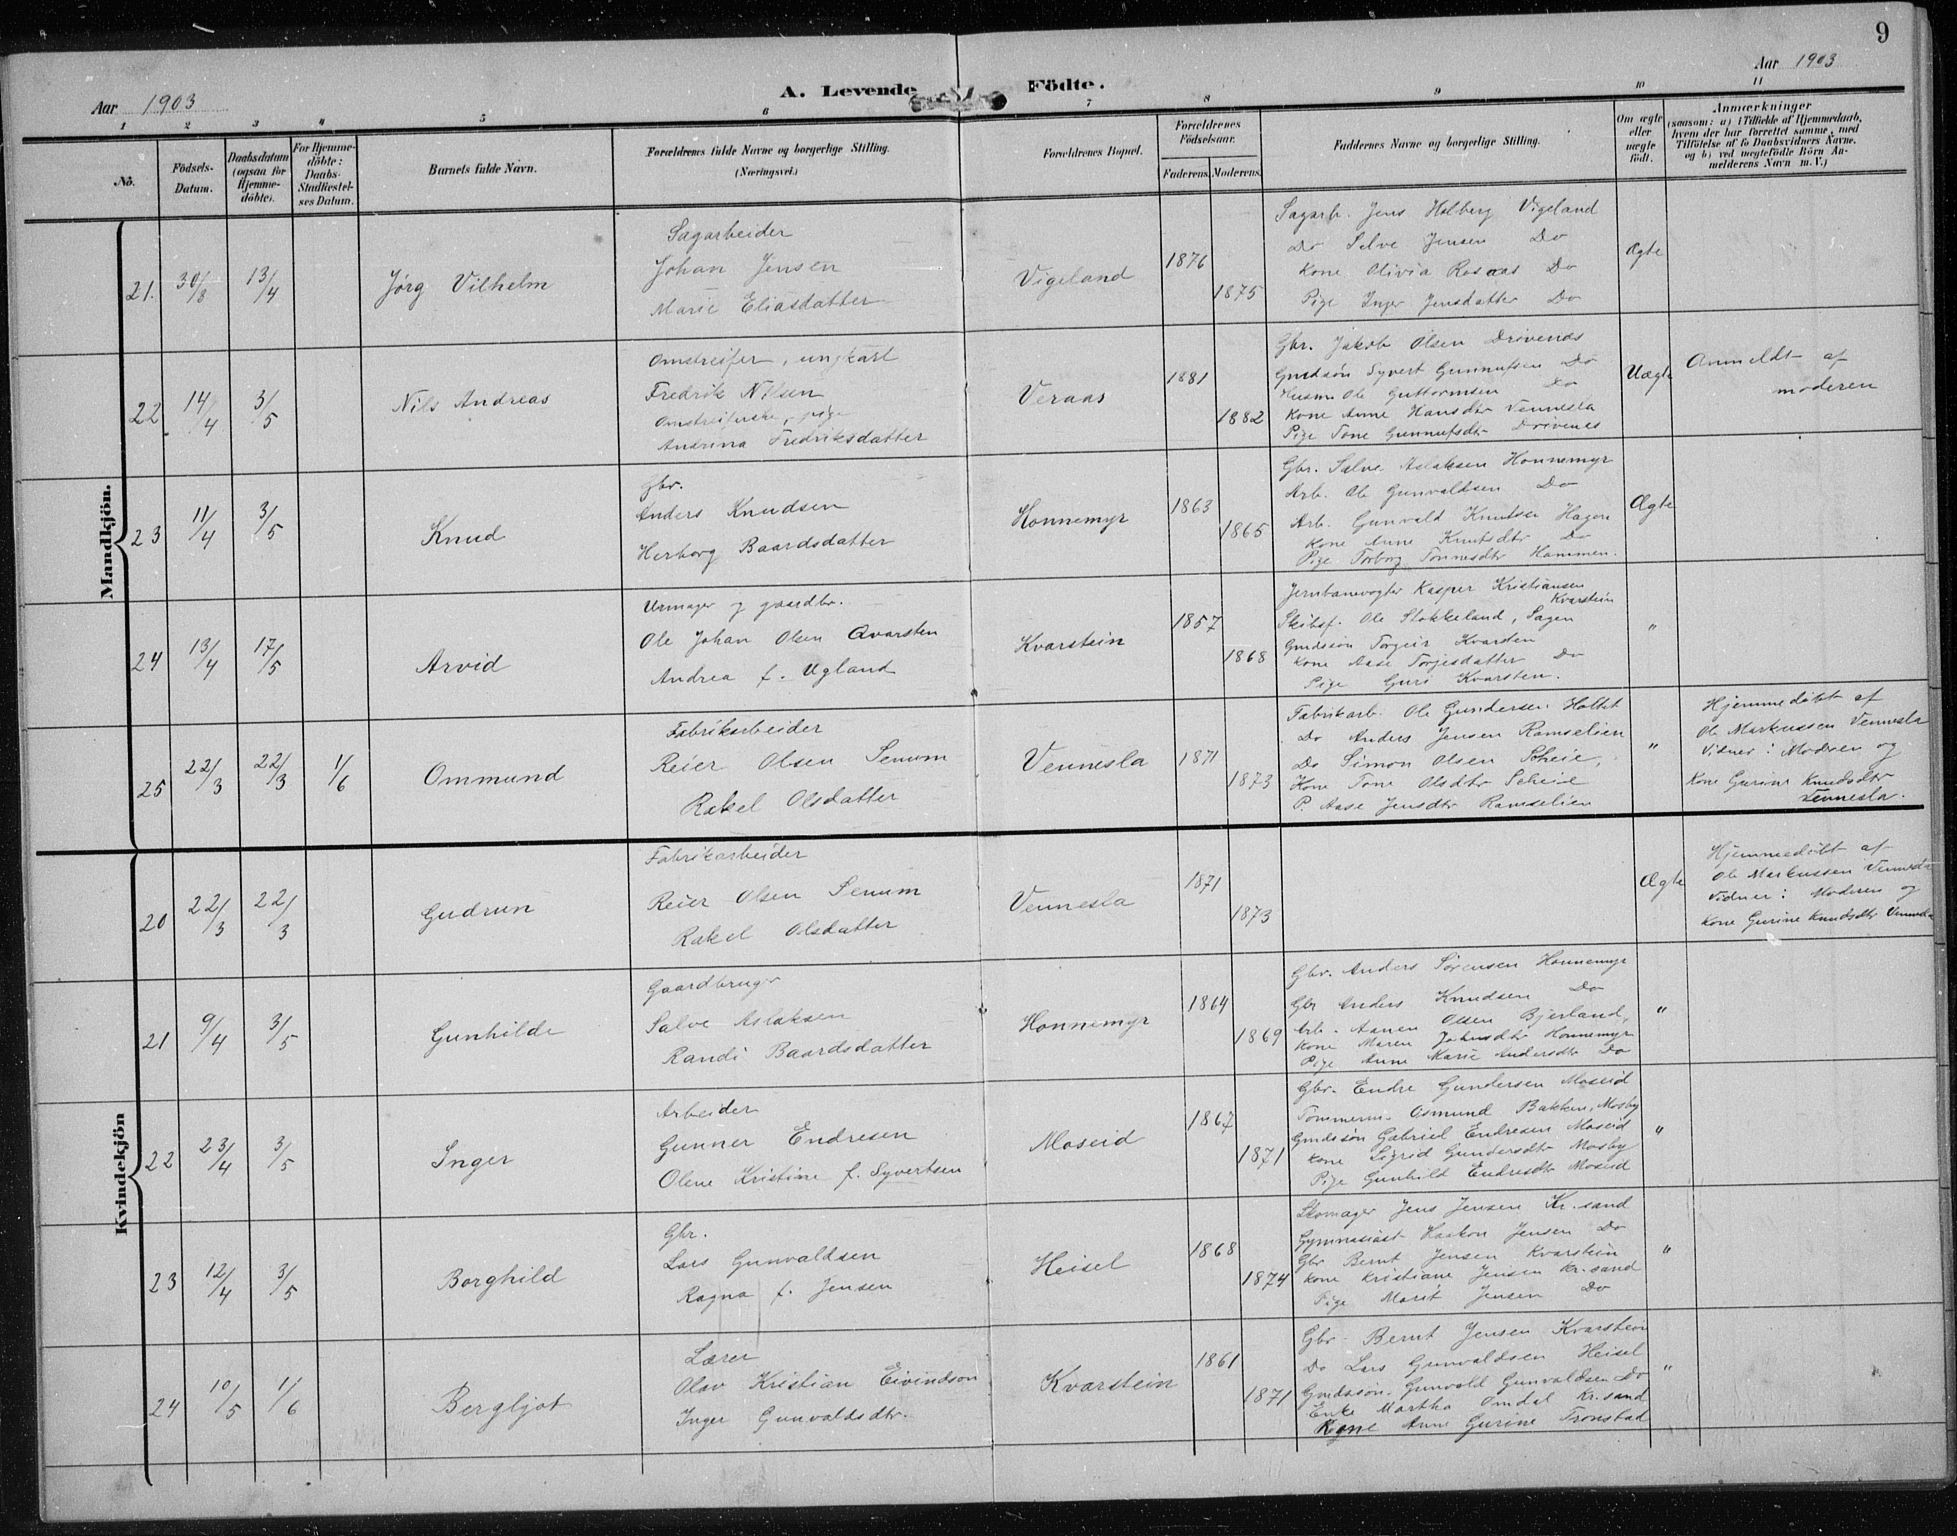 9
Aar 1903
A. Levende Födte.
Aar 1903
1 2 3 4 5 6 7 8 9 10 11
No.
Födsels-Datum.
Daabsdatum (ogsaa for Hjemme-döbte).
For Hjemme-döbte: Daabs-Stadfæstel-ses Datum.
Barnets fulde Navn.
Forældrenes fulde Navne og borgerlige Stilling.
(Næringsvei.)
Forældrenes Bopæl.
Forældrenes Födselsaar.
Faderens. Moderens.
Faddernes Navne og borgerlige Stilling.
Om ægte eller uægte født.
Anmærkninger
(saasom: a) i Tilfælde af Hjemmedaab, hvem der har forrettet samme, med Tilføielse af to Daabsvidners Navne, og b) ved uægtefödte Börn Anmelderens Navn m. V.)
Mandkjön.
21. 30/8 13/4
Jørg Vilhelm
Sagarbeider
Johan Jensen
Marie Eliasdatter
Vigeland
1876
1875
Sagarb. Jens Holberg Vigeland
Do Salve Jensen Do
Kone Olivia Rosaas Do
Pige Inger Jensdatter Do
Ægte
22 14/4 3/5
Nils Andreas
Omstreifer, ungkarl
Fredrik Nilsen
Omstreiferske, pige
Andrina Fredriksdatter
Veraas
1881
1882
Gbr. Jakob Olsen Drivenes
Gmdsøn Syvert Gunnufsen Do
Husm Ole Guttormsen Do
Kone Anne Hansdtr Vennesla
Pige Tone Gunnufsdtr Drivenes
Uægte
Anmeldt af
moderen
23 11/4 3/5
Knud
Gbr.
Anders Knudsen
Herborg Baardsdatter
Honnemyr
1863
1865
Gbr. Salve Aslaksen Honnemyr
Arb. Ole Gunvaldsen Do
Arb. Gunvald Knutsen Hagen
Kone Anne Knutsdtr Do
Pige Torborg Tønnesdtr Hommen.
Ægte
24 13/4 17/5
Arvid
Urmager og gaardbr.
Ole Johan Olsen Qvarsten
Andrea f. Ugland
Kvarstein
1857
1868
Jernbanevogter Kasper Kristiansen
Kvarstein
Skibsf. Ole Stokkeland, Sagen
Gmdssøn Torgeir Kvarsten
Kone Aase Torjesdatter Do
Pige Guri Kvarsten.
"
25 22/3 22/3 1/6
Ommund
Fabrikarbeider
Reier Olsen Senum
Rakel Olsdatter
Vennesla
1871
1873
Fabrikarb. Ole Gundersen Holtet
Do Anders Jensen Ramselien
Do Simon Olsen Scheie,
Kone Tone Olsdtr Scheie
P. Aase Jensdtr Ramselien
"
Hjemmedøbt af
Ole Markussen Vennesla
Vidner: Moderen og
Kone Gurine Knudsdtr
Vennesla.
Kvindekjön
20 22/3 22/3
Gudrun
Fabrikarbeider
Reier Olsen Senum
Rakel Olsdatter
Vennesla
1871
1873
Ægte
Hjemmedøbt af
Ole Markussen Vennesla
Vidner: Moderen og
Kone Gurine Knudsdtr Vennesla
21 9/4 3/5
Gunhilde
Gaardbruger
Salve Aslaksen
Randi Baardsdatter
Honnemyr
1864
1869
Gbr. Anders Sørensen Honnemyr
Gbr Anders Knudsen Do
Arb. Aanen Olsen Bjerland,
Kone Maren Johnsdtr Honnemyr
Pige Anne Marie Andersdtr Do
"
22 23/4 3/5
Inger
Arbeider
Gunner Endresen
Olene Kristine f. Syvertsen
Moseid
1867
1871
Gbr. Endre Gundersen Moseid
Tømmerm. Osmund Bakken, Mosby
Gmdssøn Gabriel Endresen Moseid
Kone Sigrid Gundersdtr Mosby
Pige Gunhild Endresdtr Moseid
"
23 12/4 3/5
Borghild
Gbr.
Lars Gunvaldsen
Ragna f. Jensen
Heisel
1868
1874
Skomager Jens Jensen Kr.sand
Gymnasiast Haakon Jensen Do
Gbr Bernt Jensen Kvarstein
Kone Kristiane Jensen Kr.sand
Pige Marit Jensen Do
"
24 10/5 1/6
Bergljot
Lærer
Olav Kristian Eivindson
Inger Gunvaldsdtr.
Kvarstein
1861
1871
Gbr. Bernt Jensen Kvarstein
Do Lars Gunvaldsen Heisel
Gmdssøn. Gunvald Gunvaldsen Do
Enke Martha Omdal Kr.sand
Kone Anne Gurine Tronstad
"